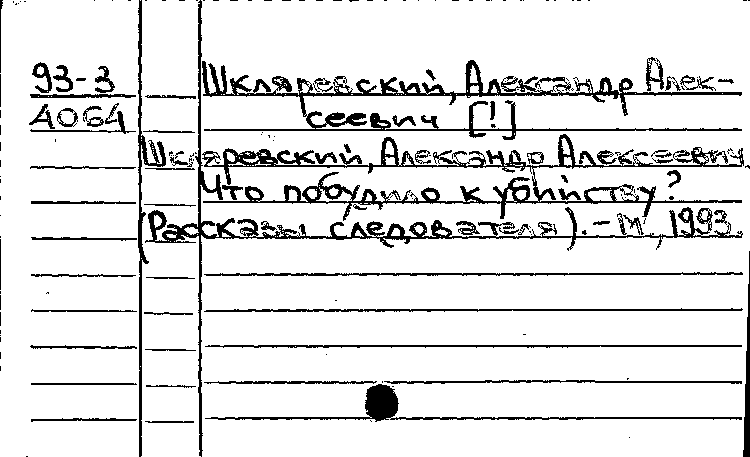 93-3 Шкляревский, Александр Алек-
4064 сеевич [!]
Шкляревский, Александр Алексеевич
Что побудило к убийству?
(Рассказы следователя). - М., 1993.